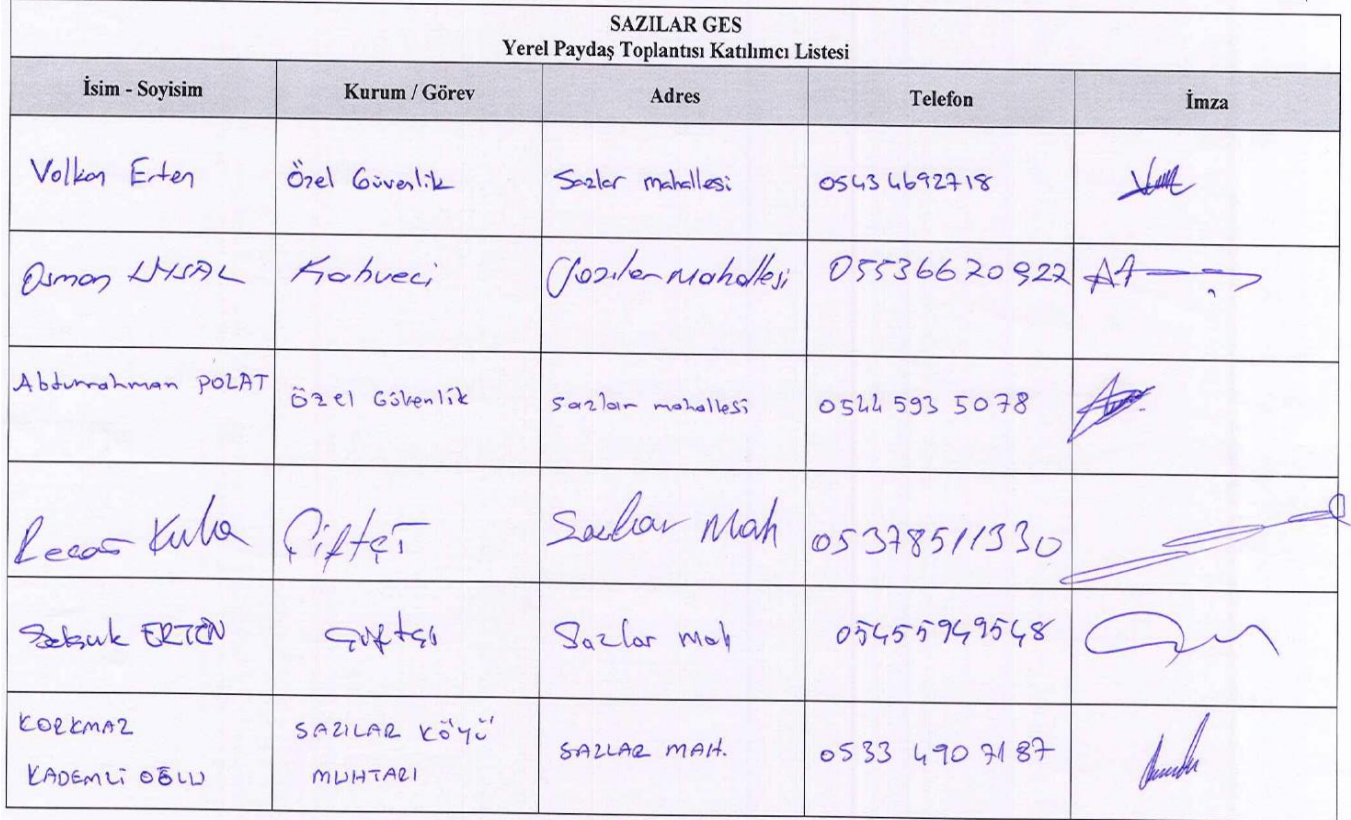 SAZILAR GES
Yerel Paydaş Toplantısı Katılımcı Listesi
İsim - Soyisim Kurum / Görev Adres Telefon İmza
Volkan Erten Özel Güvenlik Sazlar mahallesi 05434692718
Osman UYSAL Kahveci Sazılar Mahallesi 05536620922
Abdurrahman POLAT Özel Güvenlik Sazlar mahallesi 0544 593 5078
Kula Çiftçi Sazlar Mah 05378511330
Selçuk ERTEN Çiftçi Sazlar Mah 05455949548
KORKMAZ SAZILAR KÖYÜ SAZLAR MAH. 0533 490 7187
KADEMLİ OĞLU MUHTARI